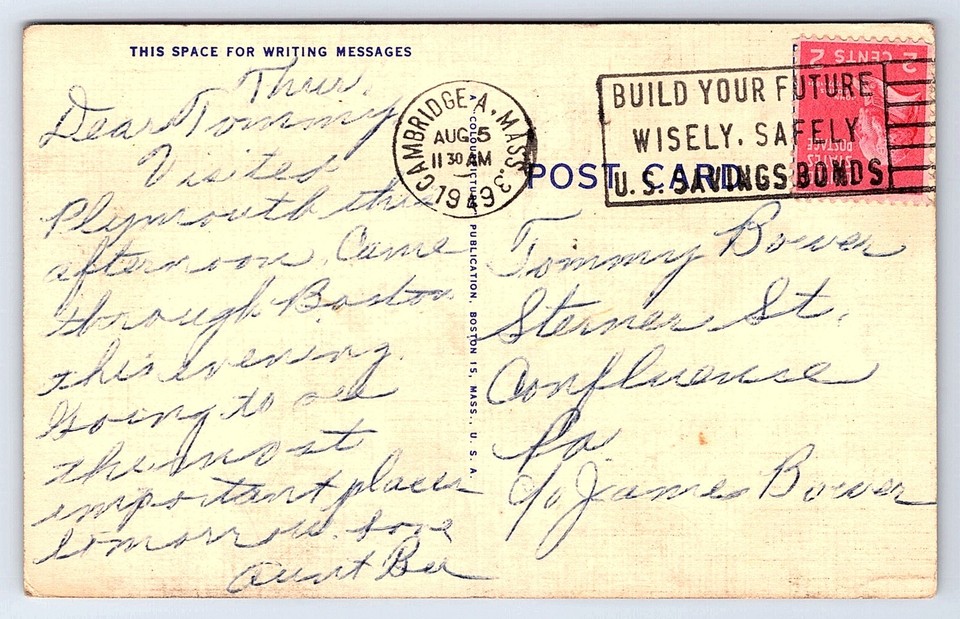 THIS SPACE FOR WRITING MESSAGES
Thur.
Dear Tommy
Visited
Plymouth this
afternoon. Came
through Boston
this evening.
Going to see
the most
important places
tomorrow. Love
Aunt Bee
COLOURPICTURE PUBLICATION, BOSTON 15, MASS., U. S. A.
CAMBRIDGE A, MASS.
AUG 5
11 30 AM
1949
BUILD YOUR FUTURE
WISELY, SAFELY
U.S. SAVINGS BONDS
2 CENTS 2
STATES
POSTAGE
POST CARD
Tommy Bower
Sterner St.
Confluence
Pa.
c/o James Bower